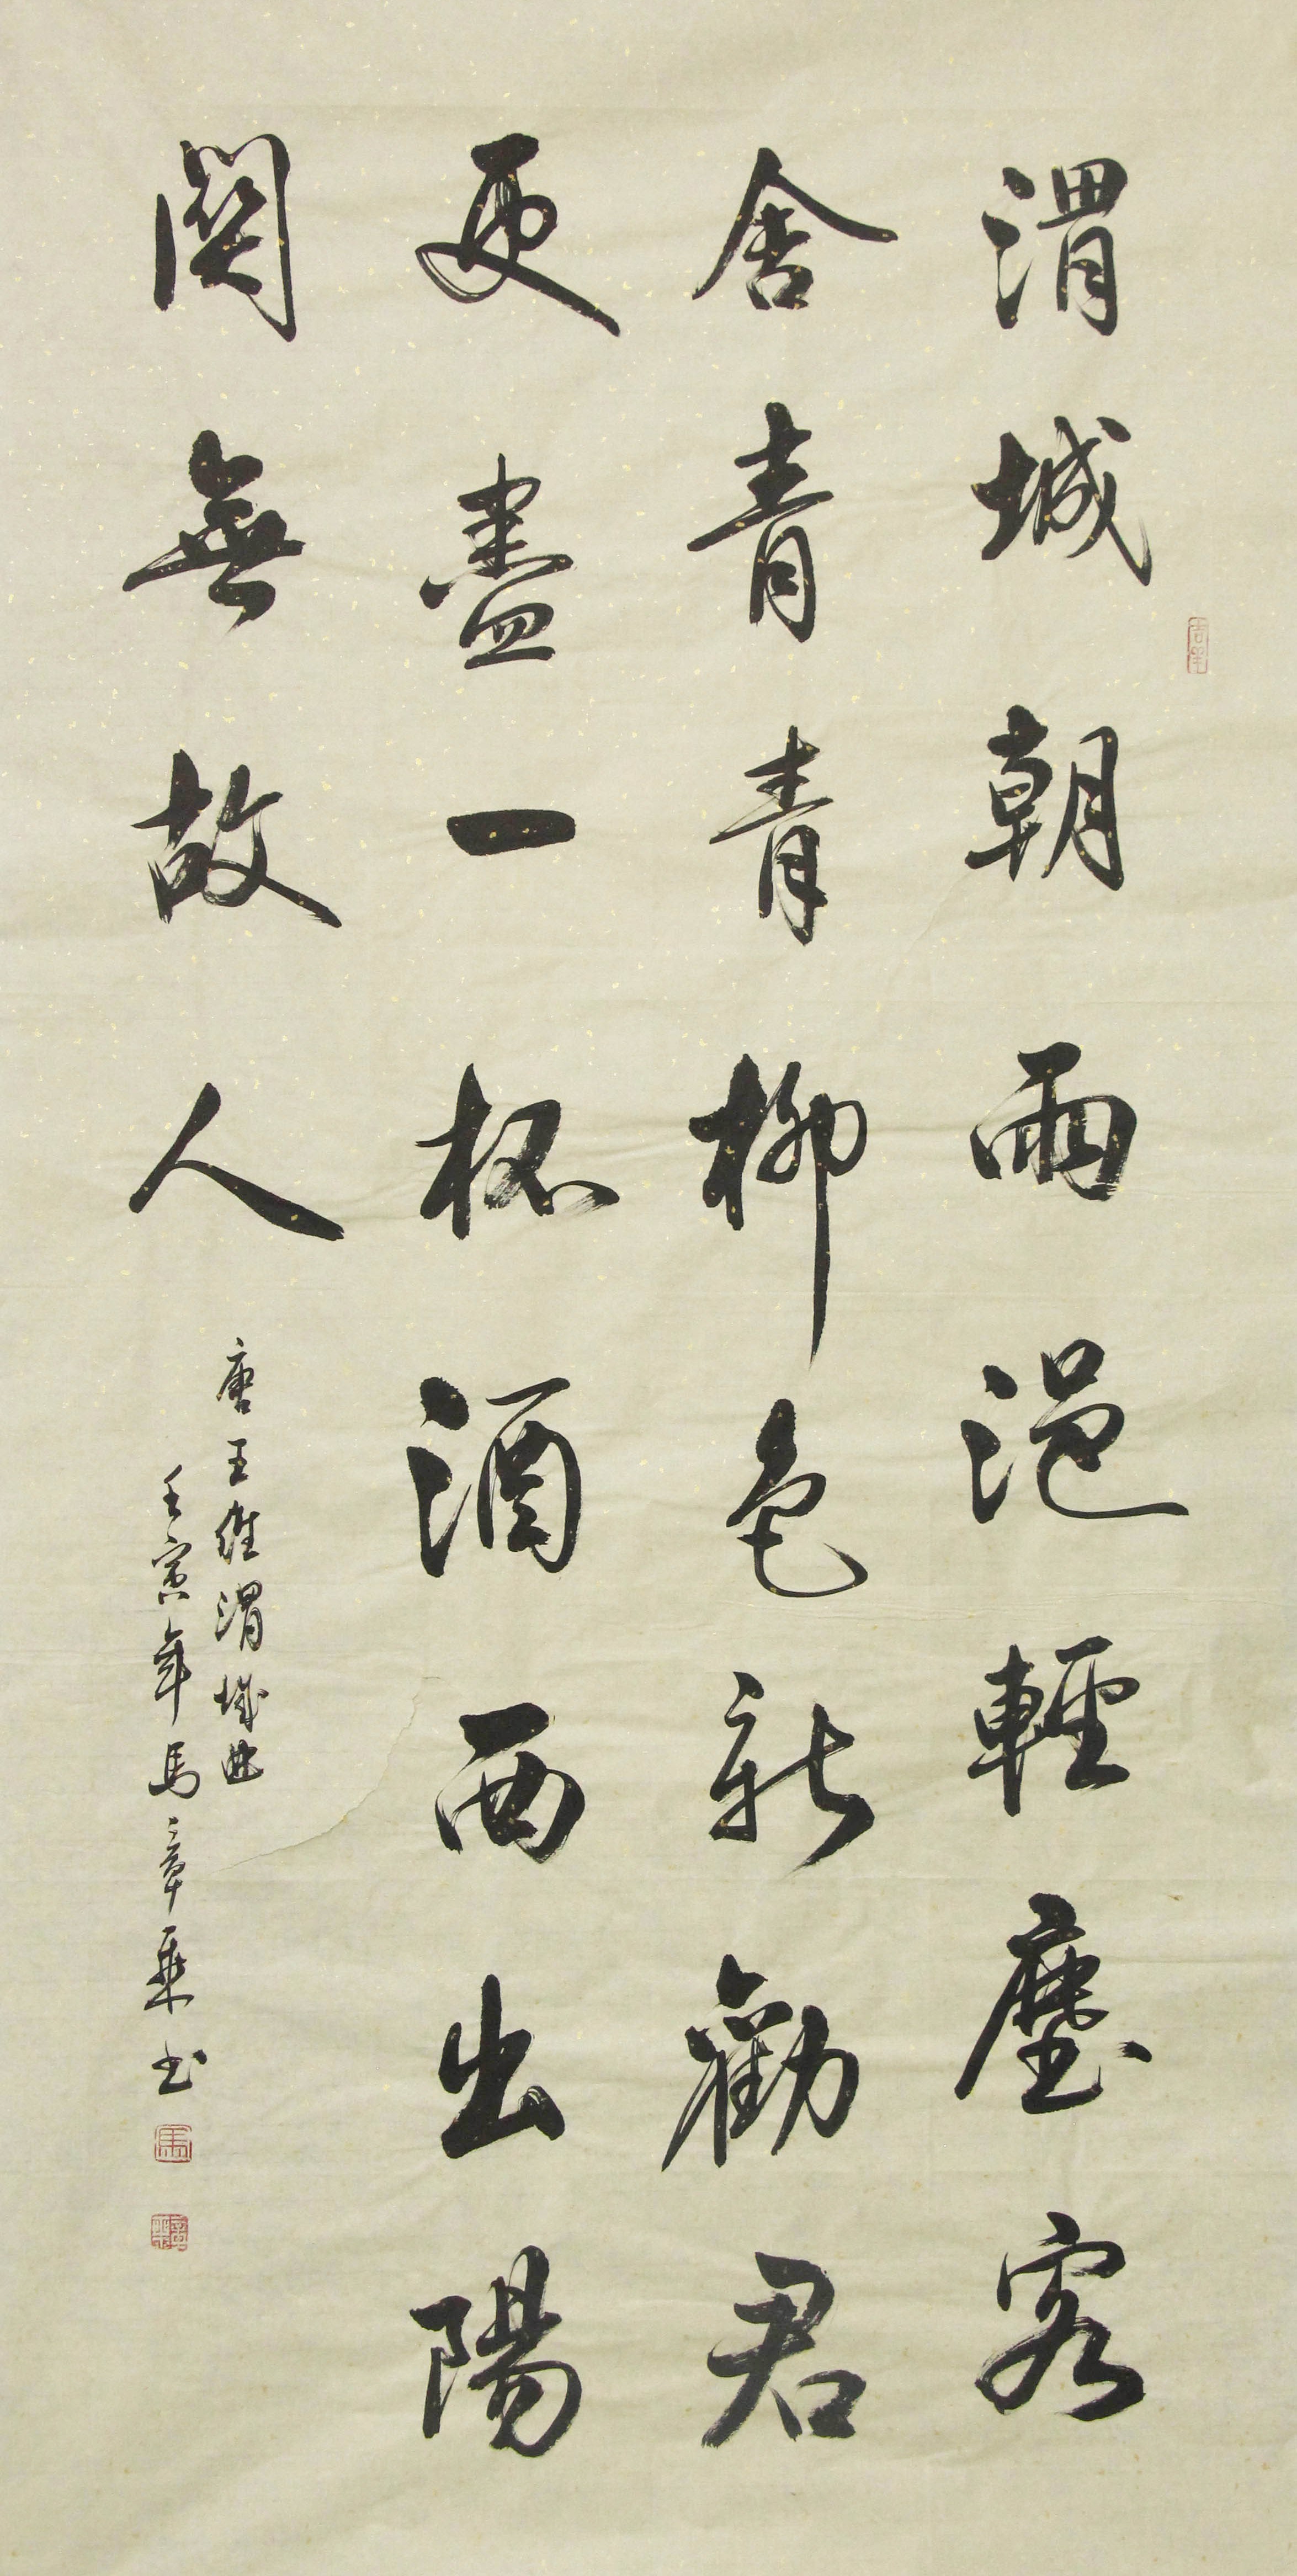 渭城朝雨浥輕塵客
舍青青柳色新勸君
更盡一杯酒西出陽
關無故人
唐王維渭城曲
壬寅年馬章乘书